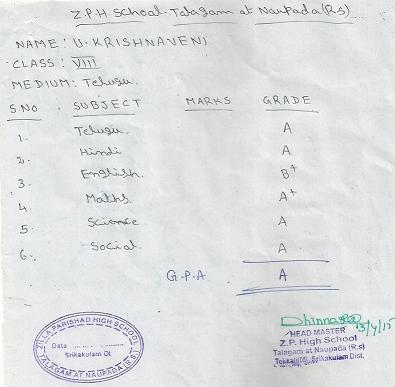 Z.P.H School. Talagam at Naupada (R.s)
NAME: U. KRISHNAVENI
CLASS: VIII
MEDIUM: Telugu.
S.NO SUBJECT MARKS GRADE
1. Telugu. A
2. Hindi A
3. English. B+
4. Maths. A+
5. Science A
6. Social. A
G.P.A A
ZILLA PARISHAD HIGH SCHOOL
Date
Srikakulam Dt
TALAGAM AT NAUPADA (R.S)
HEAD MASTER
Z.P. High School
Talagam at Naupada (R.s)
Tekkali(M), Srikakulam Dist.